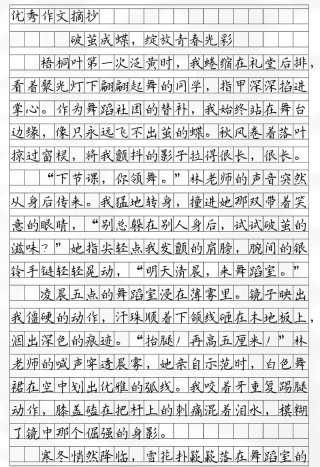 优秀作文摘抄
破茧成蝶，绽放青春光彩
梧桐叶第一次泛黄时，我蜷缩在礼堂后排，
看着聚光灯下翩翩起舞的同学，指甲深深掐进
掌心。作为舞蹈社团的替补，我始终站在舞台
边缘，像只永远飞不出茧的蝶。秋风卷着落叶
掠过窗棂，将我颤抖的影子拉得很长，很长。
“下节课，你领舞。”林老师的声音突然
从身后传来。我猛地转身，撞进她那双带着笑
意的眼睛，“别总躲在别人身后，试试破茧的
滋味？”她指尖轻点我发颤的肩膀，腕间的银
铃手链轻轻晃动，“明天清晨，来舞蹈室。”
凌晨五点的舞蹈室浸在薄雾里。镜子映出
我僵硬的动作，汗珠顺着下颌线砸在木地板上，
洇出深色的痕迹。“抬腿！再高五厘米！”林
老师的喊声穿透晨雾，她亲自示范时，白色舞
裙在空中划出优雅的弧线。我咬着牙重复踢腿
动作，膝盖磕在把杆上的刺痛混着泪水，模糊
了镜中那个倔强的身影。
寒冬悄然降临，雪花扑簌簌落在舞蹈室的